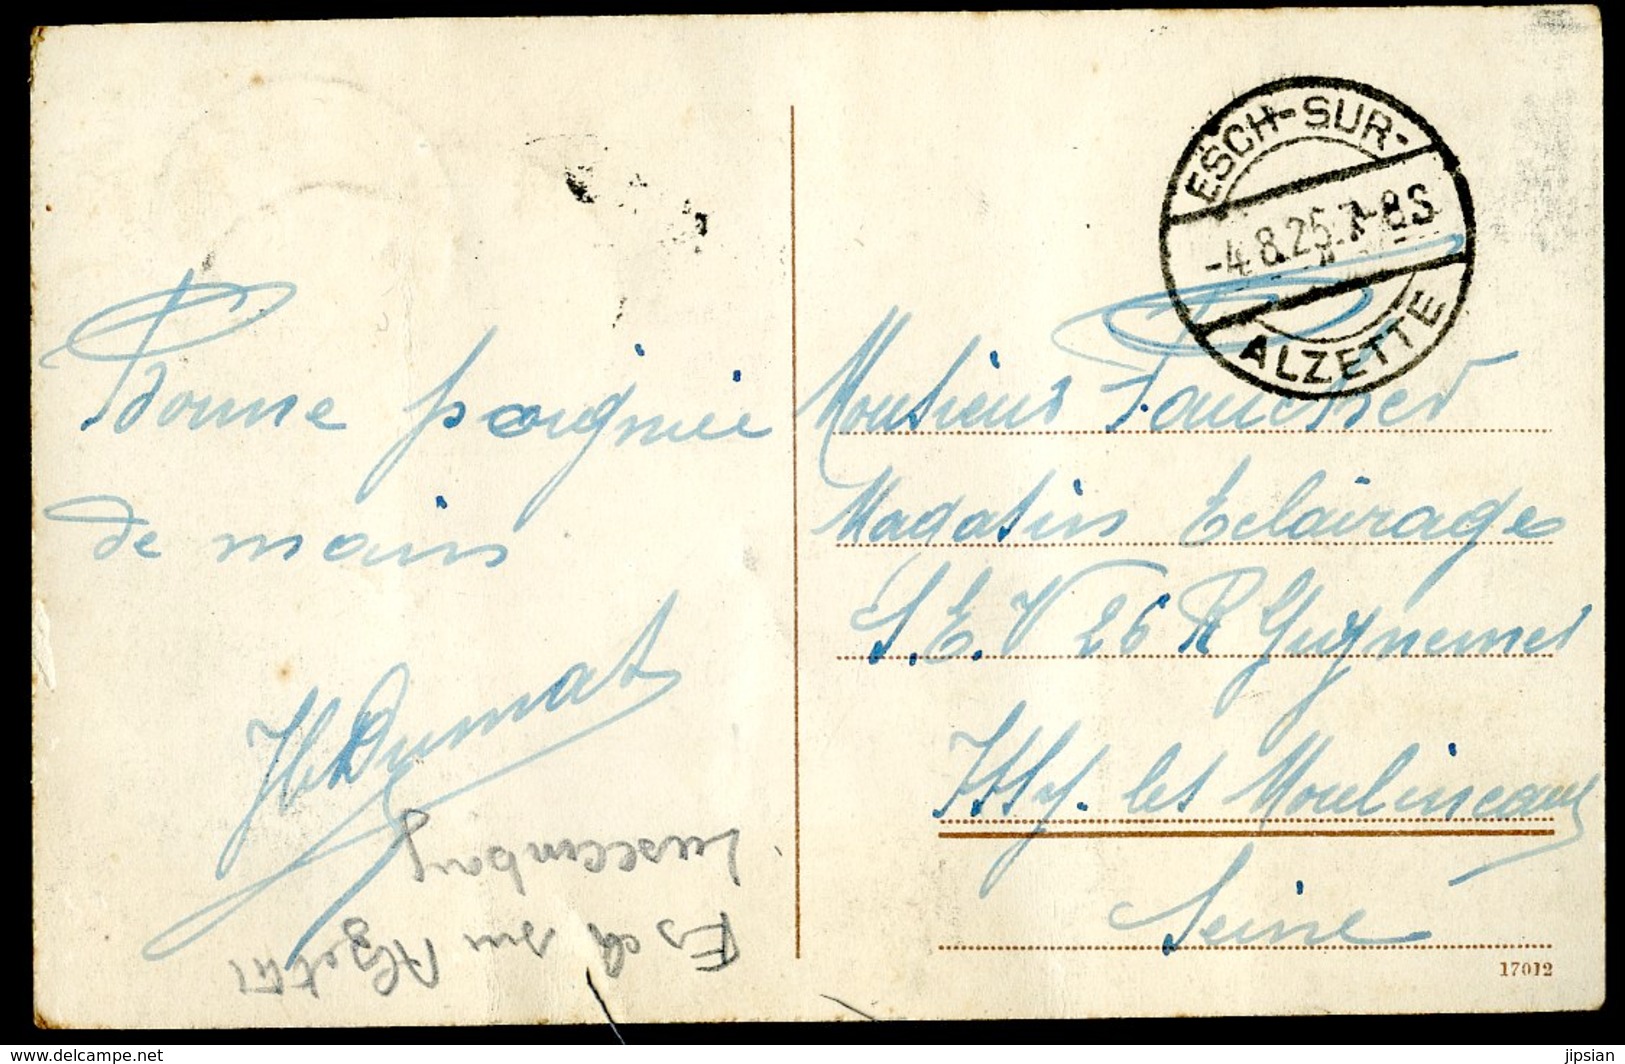 Bonne poignée
de main
Dumat
Luxembourg
Esch sur Alzette
ESCH-SUR-
-4.8.25.7-8S
ALZETTE
Monsieur Faucher
Magasin Eclairage
S.E.V 26 R Guynemer
Issy. les Moulineaux
Seine
17012
delcampe.net
jipsian